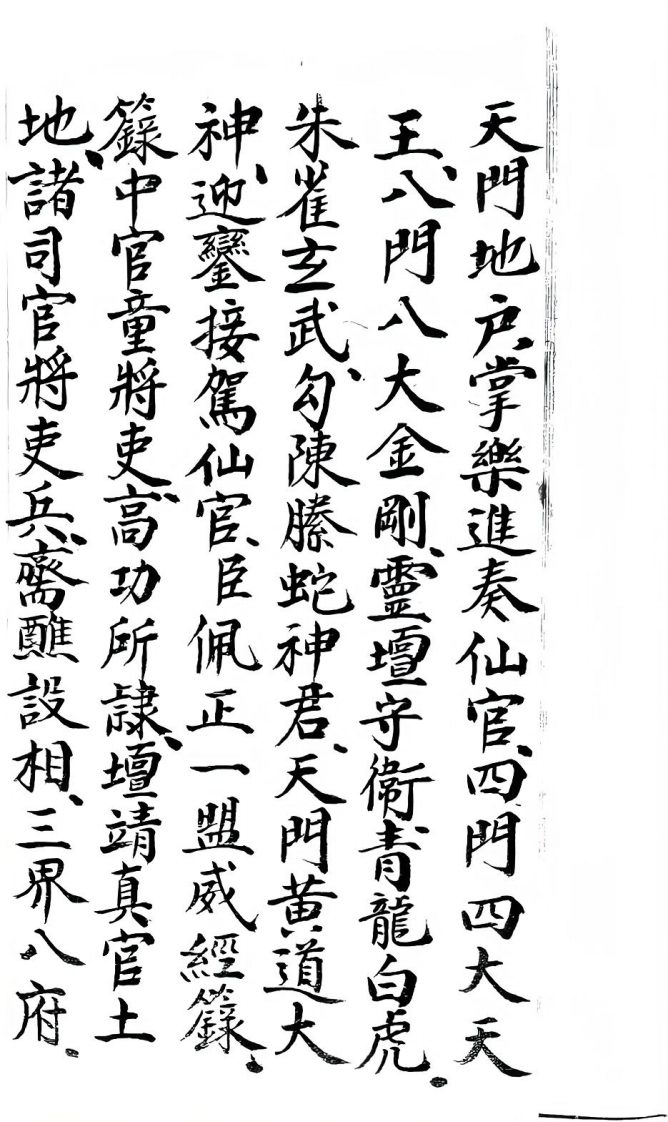 天門地户、掌樂進奏仙官、四門四大天
王、八門八大金剛、靈壇守衛青龍白虎、
朱雀玄武、勾陳螣蛇神君、天門黃道大
神、迎鑾接駕仙官、臣佩正一盟威經籙、
籙中官童將吏、高功所隷、壇靖真官土
地、諸司官將吏兵、齋醮設相、三界八府、